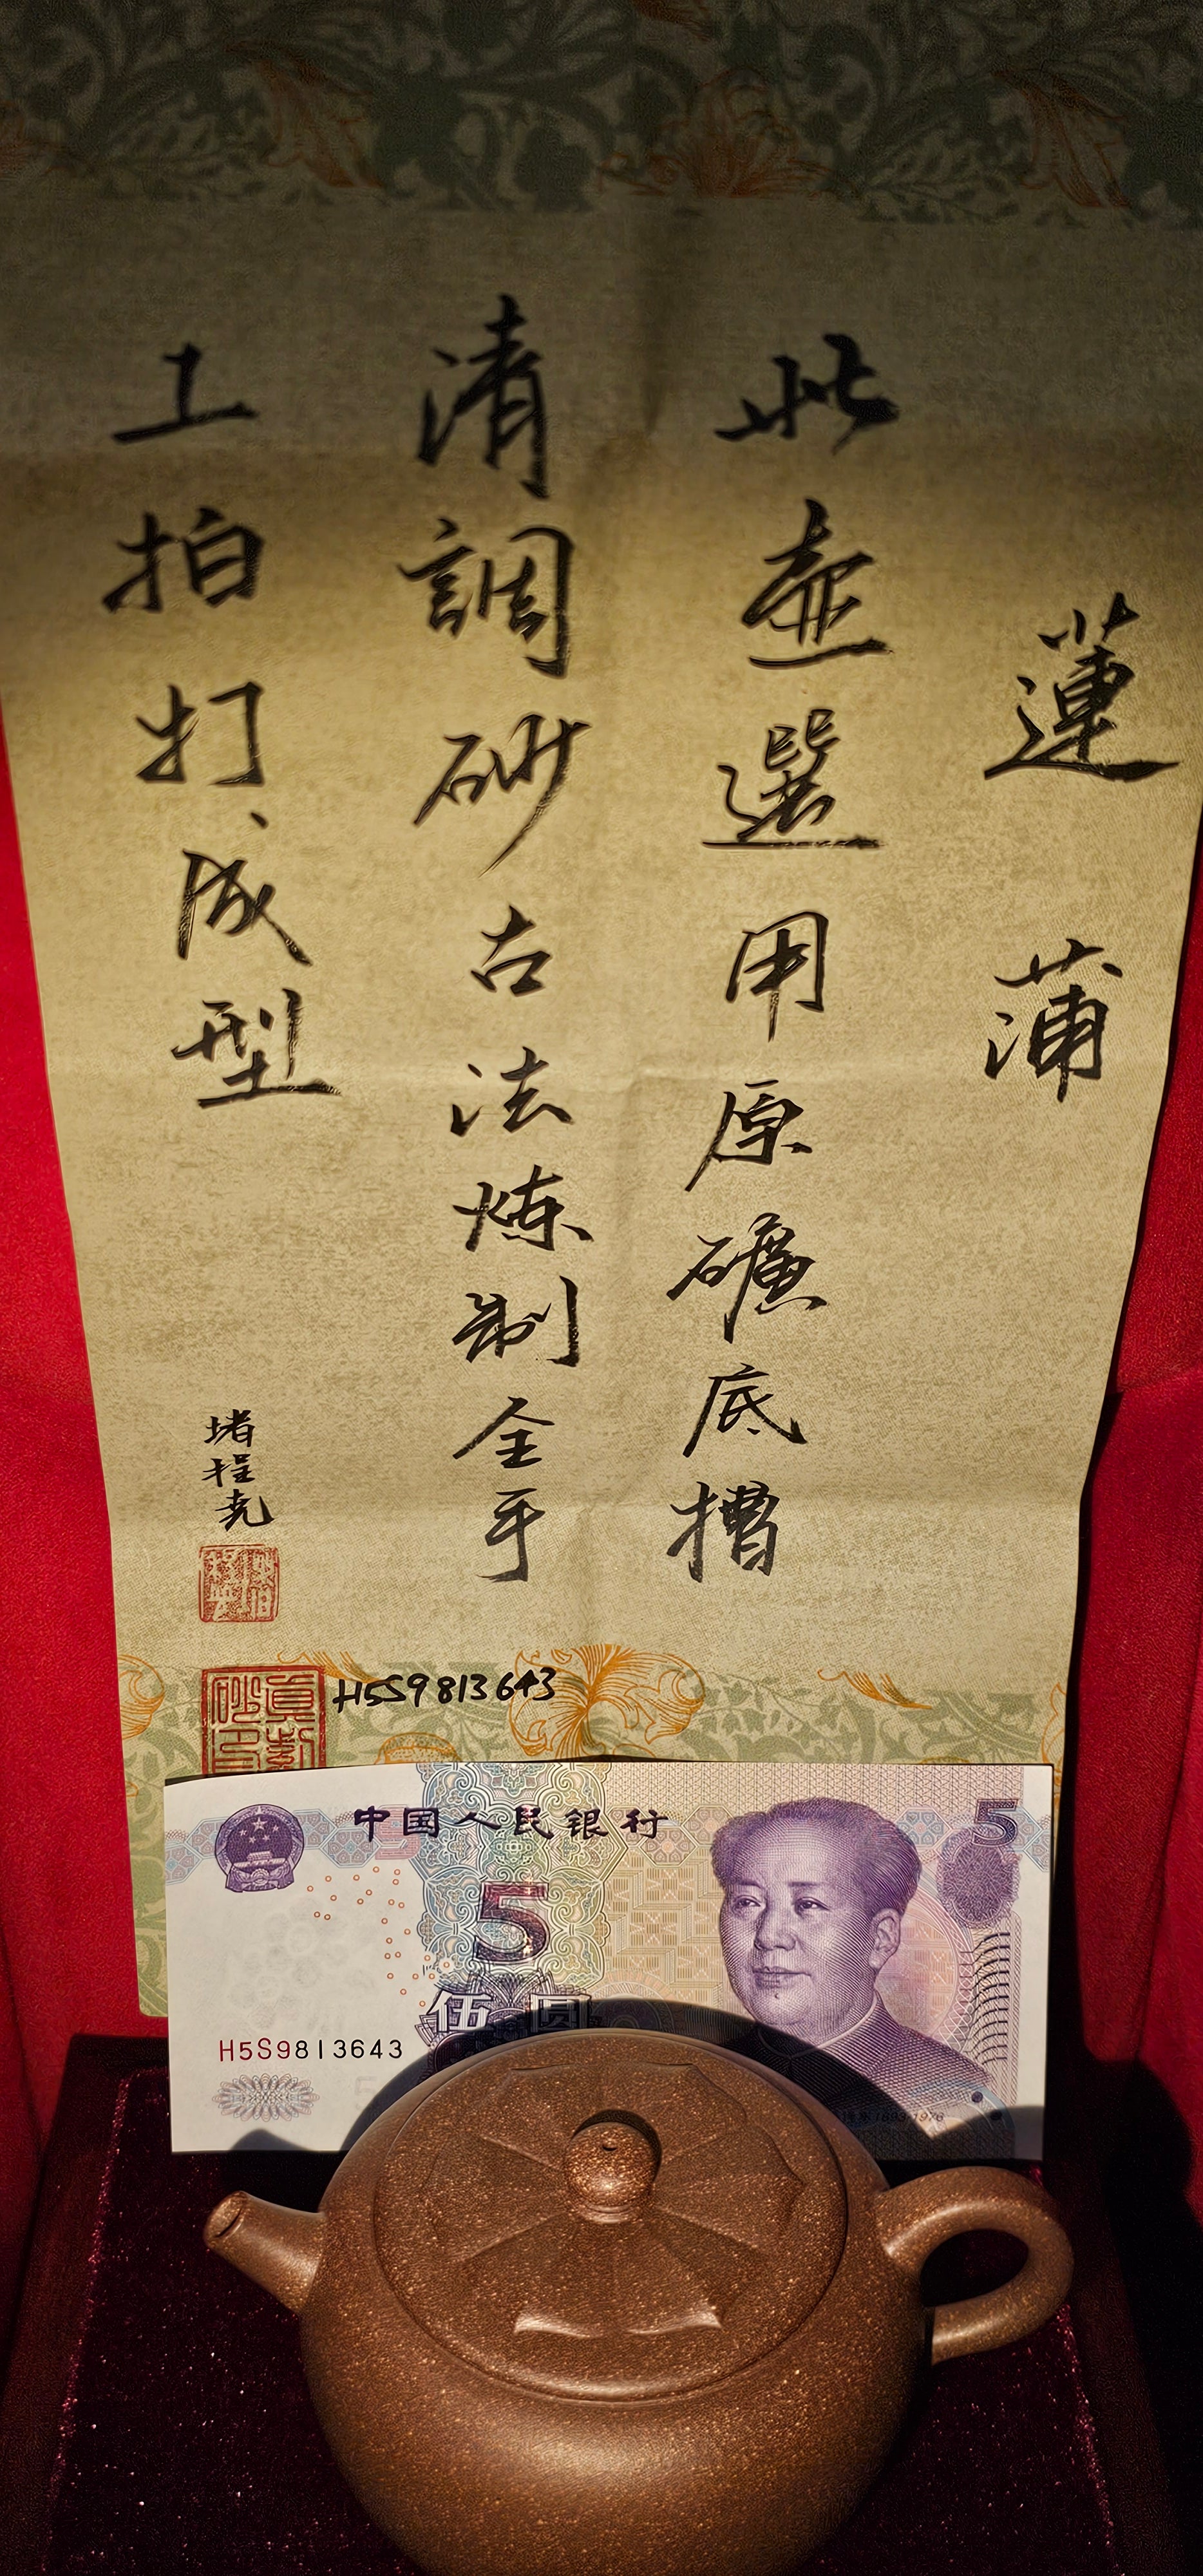 蓮蒲
此壶選用原礦底槽
清調砂古法炼制全手
工拍打成型
堵程尧
H5S9813643
中国人民银行
5
5
伍圆
H5S9813643
1893-1976